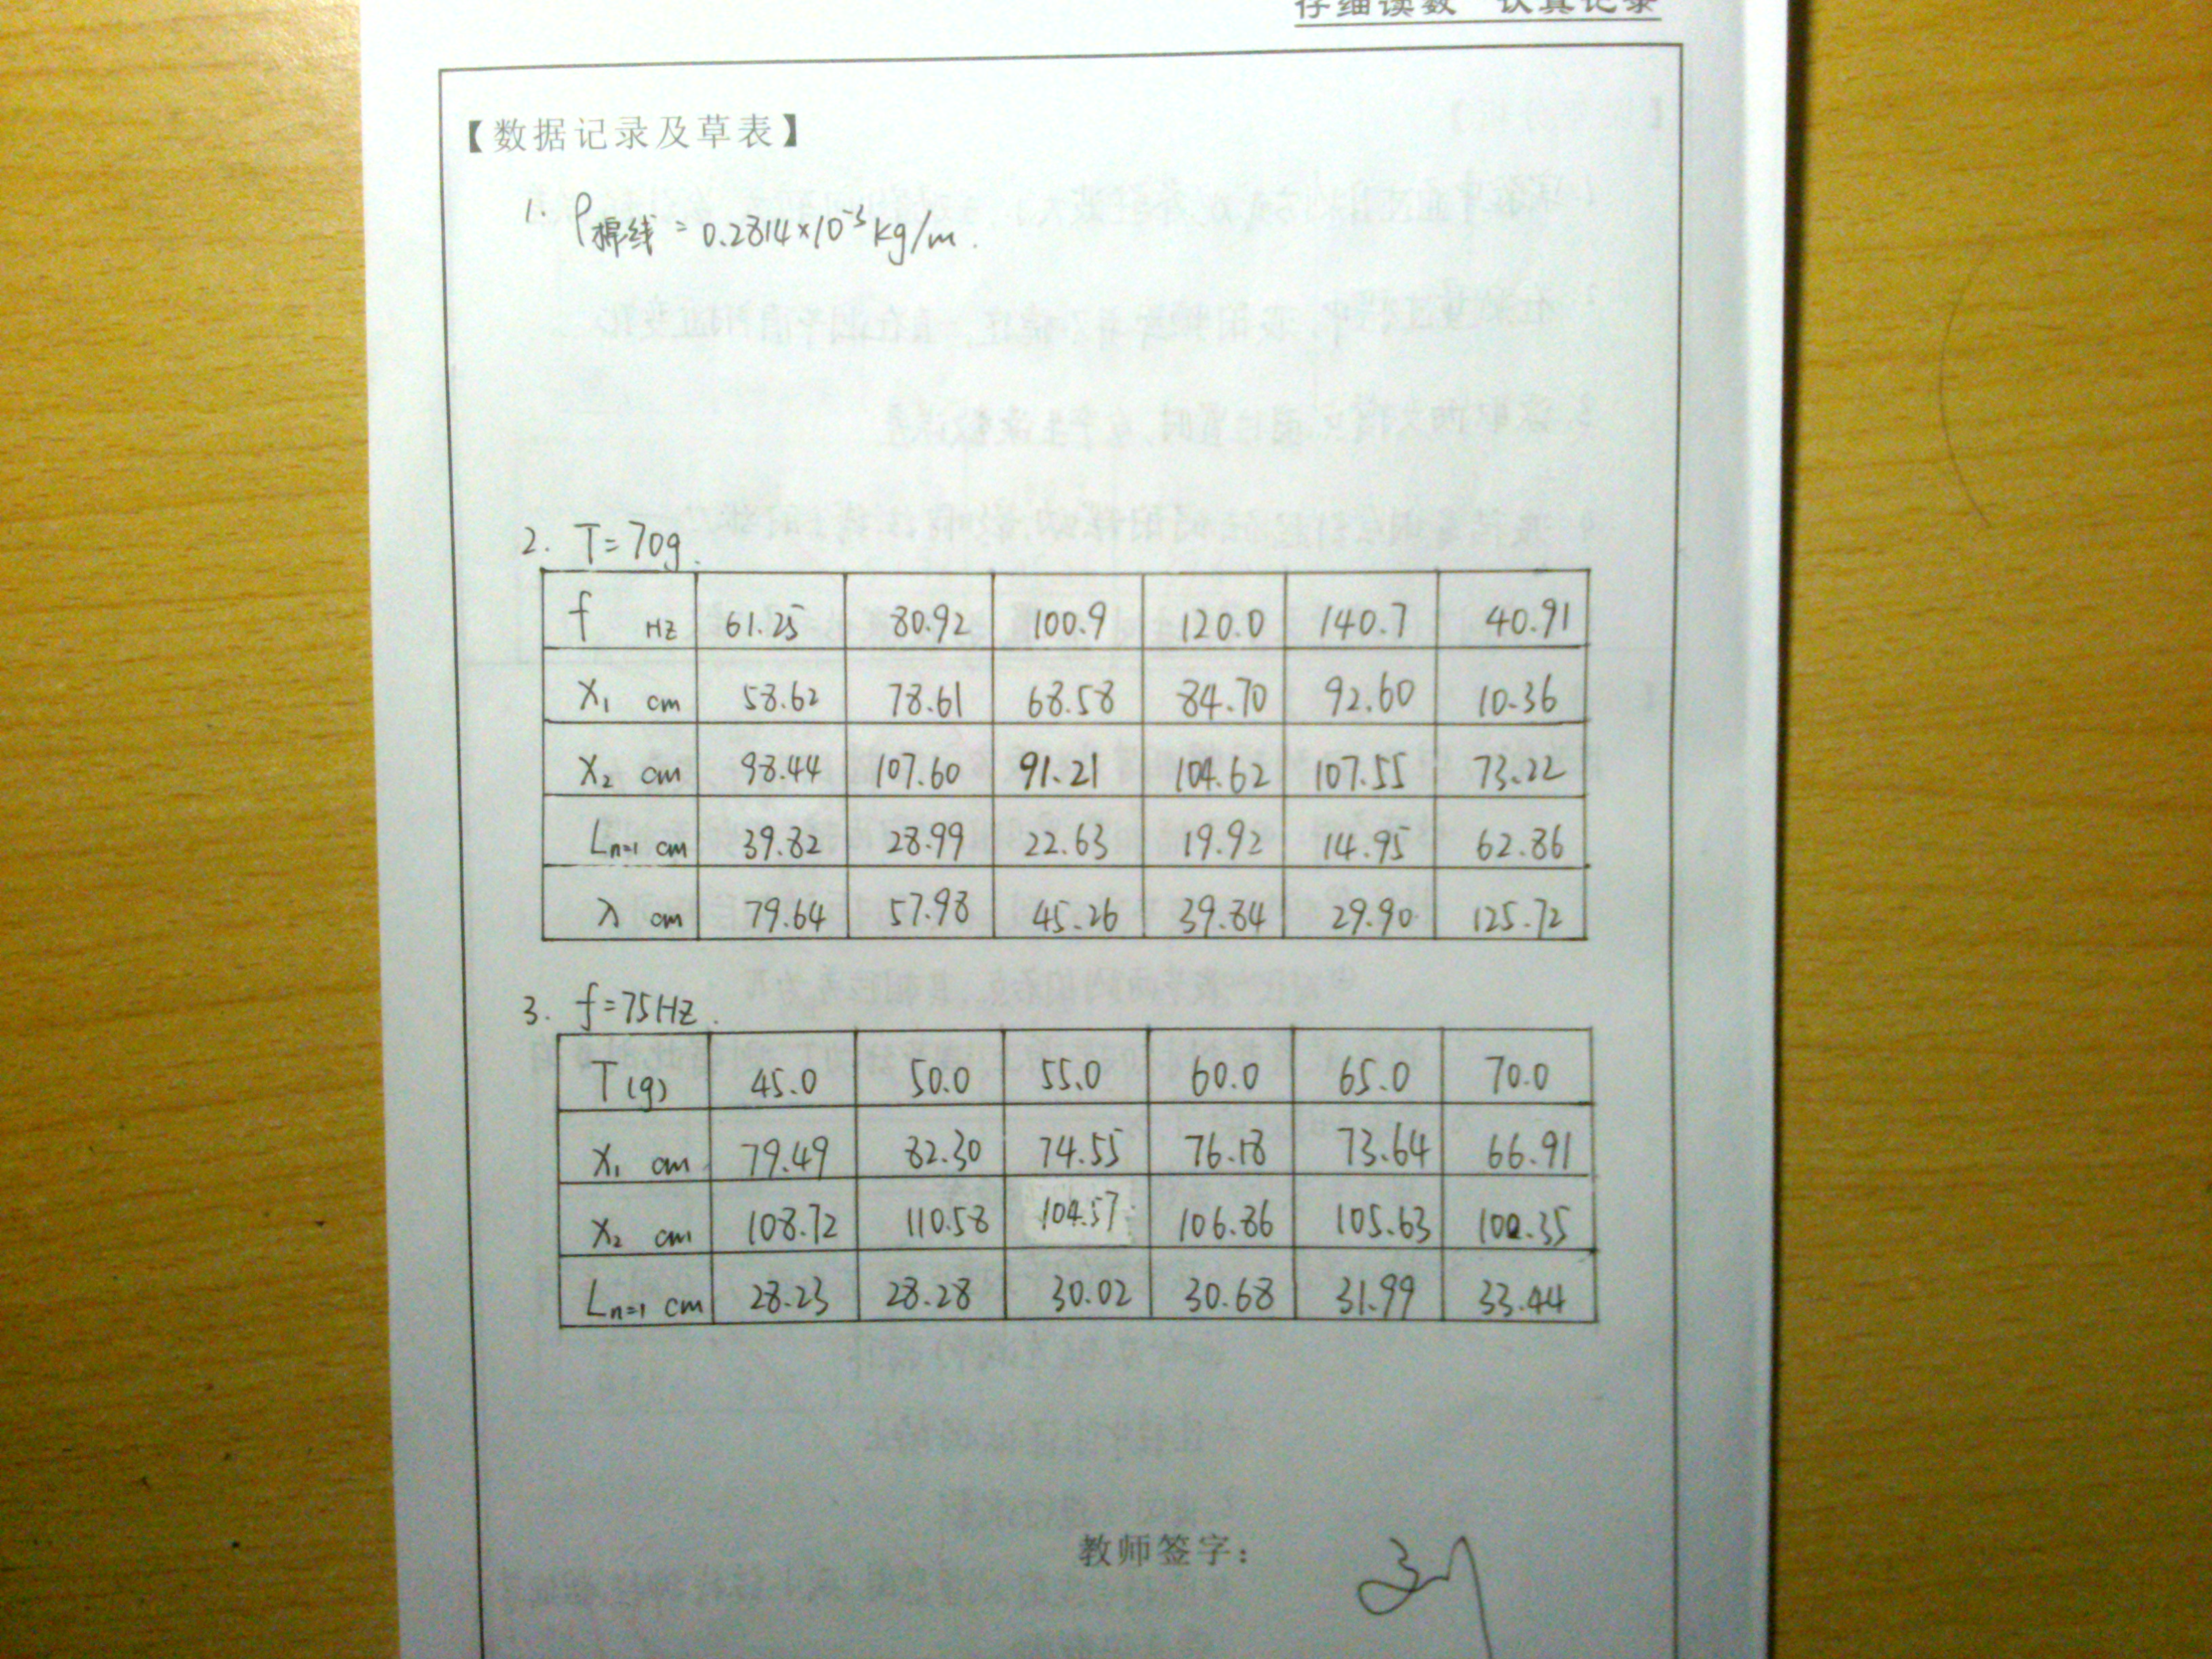 仔细读数 认真记录
【数据记录及草表】
1. ρ棉线 = 0.2814×10⁻³kg/m.
2. T=70g.
f HZ 61.25 80.92 100.9 120.0 140.7 40.91
X₁ cm 58.62 78.61 68.58 84.70 92.60 10.36
X₂ cm 98.44 107.60 91.21 104.62 107.55 73.22
Lₙ₌₁ cm 39.82 28.99 22.63 19.92 14.95 62.86
λ cm 79.64 57.98 45.26 39.84 29.90 125.72
3. f=75HZ.
T(g) 45.0 50.0 55.0 60.0 65.0 70.0
X₁ cm 79.49 82.30 74.55 76.18 73.64 66.91
X₂ cm 108.72 110.58 104.57 106.86 105.63 100.35
Lₙ₌₁ cm 28.23 28.28 30.02 30.68 31.99 33.44
教师签字：